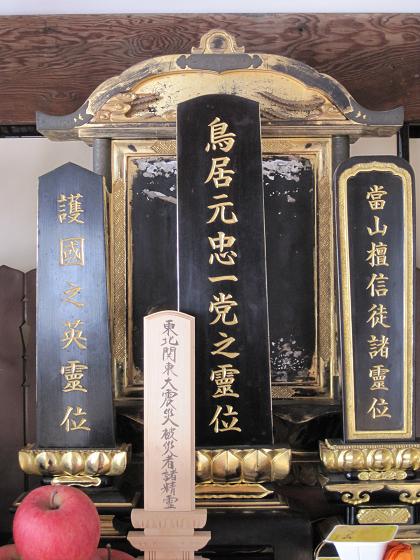 當山檀信徒諸霊位
鳥居元忠一党之靈位
東北関東大震災被災者諸精霊
護國之英靈位